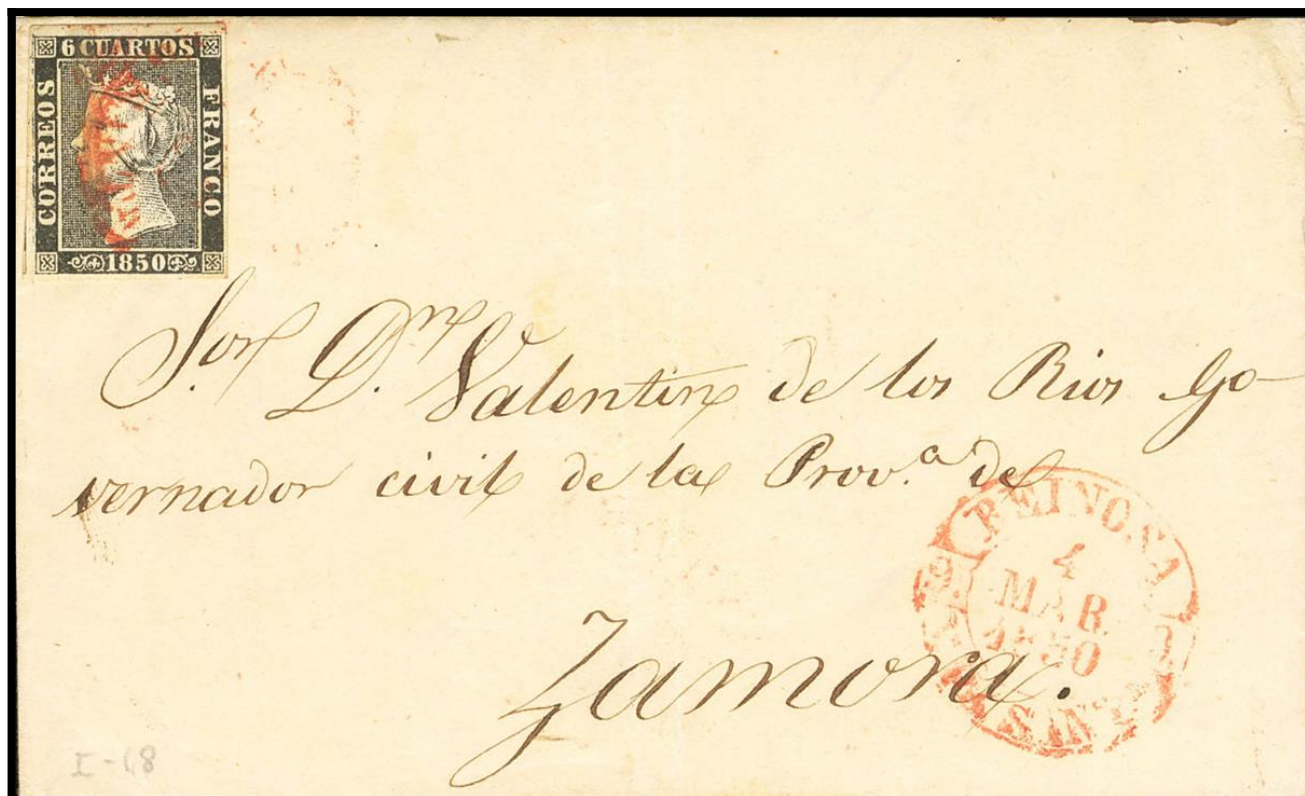 6 CUARTOS
CORREOS
FRANCO
1850
Sor. Dn. Valentin de los Rios Go-
vernador civil de la Prov.a de
Zamora.
REINOSA
4
MAR.
1850
SANT
I-1,8